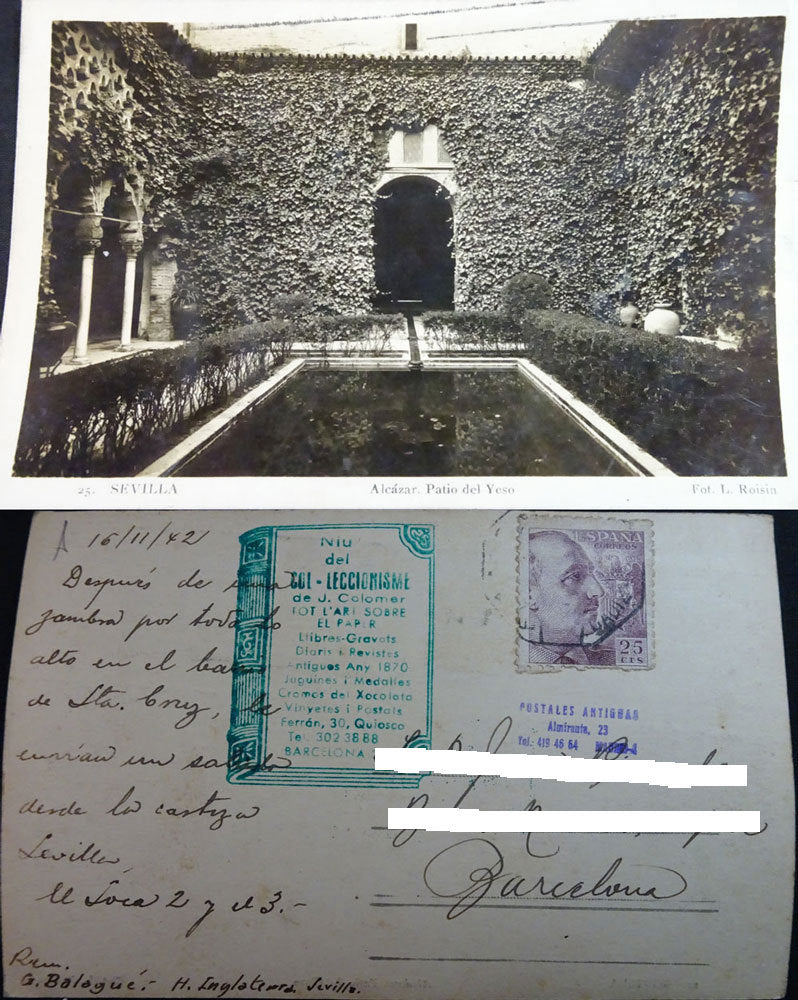 25. SEVILLA
Alcázar. Patio del Yeso
Fot. L. Roisin
A 16/11/42
Después de una
zambra por todo lo
alto en el barrio
de Sta. Cruz, le
envían un saludo
desde la castiza
Sevilla,
El Loca 2 y el 3.-
Rem.
G. Balagué.- H. Inglaterra. Sevilla.
Niu
del
COL-LECCIONISME
de J. Colomer
TOT L'ART SOBRE
EL PAPER
Llibres-Gravats
Diaris i Revistes
Antigues Any 1870
Juguines i Medalles
Cromos del Xocolata
Vinyetes i Postals
Ferrán, 30, Quiosco
Tel. 302 38 88
BARCELONA
ESPAÑA
CORREOS
25
CTS
POSTALES ANTIGUAS
Almirante, 23
Tel.: 419 46 64 MADRID-4
Barcelona